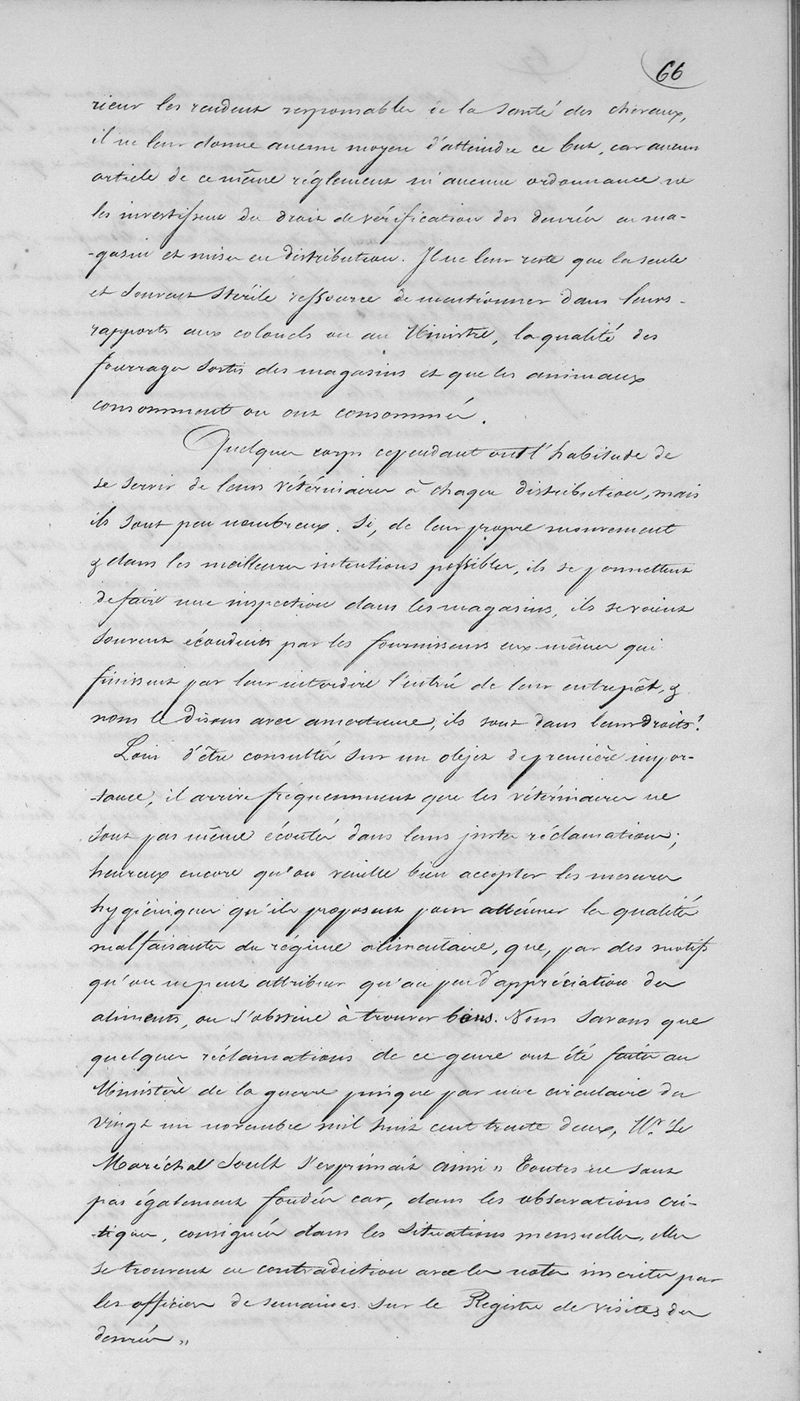 66
rieur les rendent responsables de la santé des chevaux,
il ne leur donne aucun moyen d'atteindre ce but, car aucun
article de ce même règlement ni aucune ordonnance ne
les investissent du droit de vérification des denrées en ma-
-gasin et mises en distribution. Il ne leur reste que la seule
et souvent stérile ressource de mentionner dans leurs
rapports aux colonels ou au Ministre, la qualité des
fourrages sortis des magasins et que les animaux
consomment ou ont consommés.
Quelques corps cependant ont l'habitude de
se servir de leurs vétérinaires à chaque distribution, mais
ils sont peu nombreux. Si, de leur propre mouvement
& dans les meilleures intentions possibles, ils se permettent
de faire une inspection dans les magasins, ils se voient
souvent éconduits par les fournisseurs eux-mêmes qui
finissent par leur interdire l'entrée de leur entrepôt, &
nous le disons avec amertume, ils sont dans leurs droits!
Loin d'être consultés sur un objet de première impor-
-tance, il arrive fréquemment que les vétérinaires ne
sont pas même écoutés dans leurs justes réclamations;
heureux encore qu'on veuille bien accepter les mesures
hygiéniques qu'ils proposent pour atténuer les qualités
malfaisantes du régime alimentaire, que, par des motifs
qu'on ne peut attribuer qu'au peu d'appréciation des
aliments, on s'obstine à trouver bons. Nous savons que
quelques réclamations de ce genre ont été faites au
Ministère de la guerre puisque par une circulaire du
vingt un novembre mil huit cent trente deux, Mr. Le
Maréchal Soult s'exprimait ainsi " Toutes ne sont
pas également fondées car, dans les observations cri-
-tiques, consignées dans les situations mensuelles, elles
se trouvent en contradiction avec les notes inscrites par
les officiers de semaines sur le Registre de visites des
denrées "